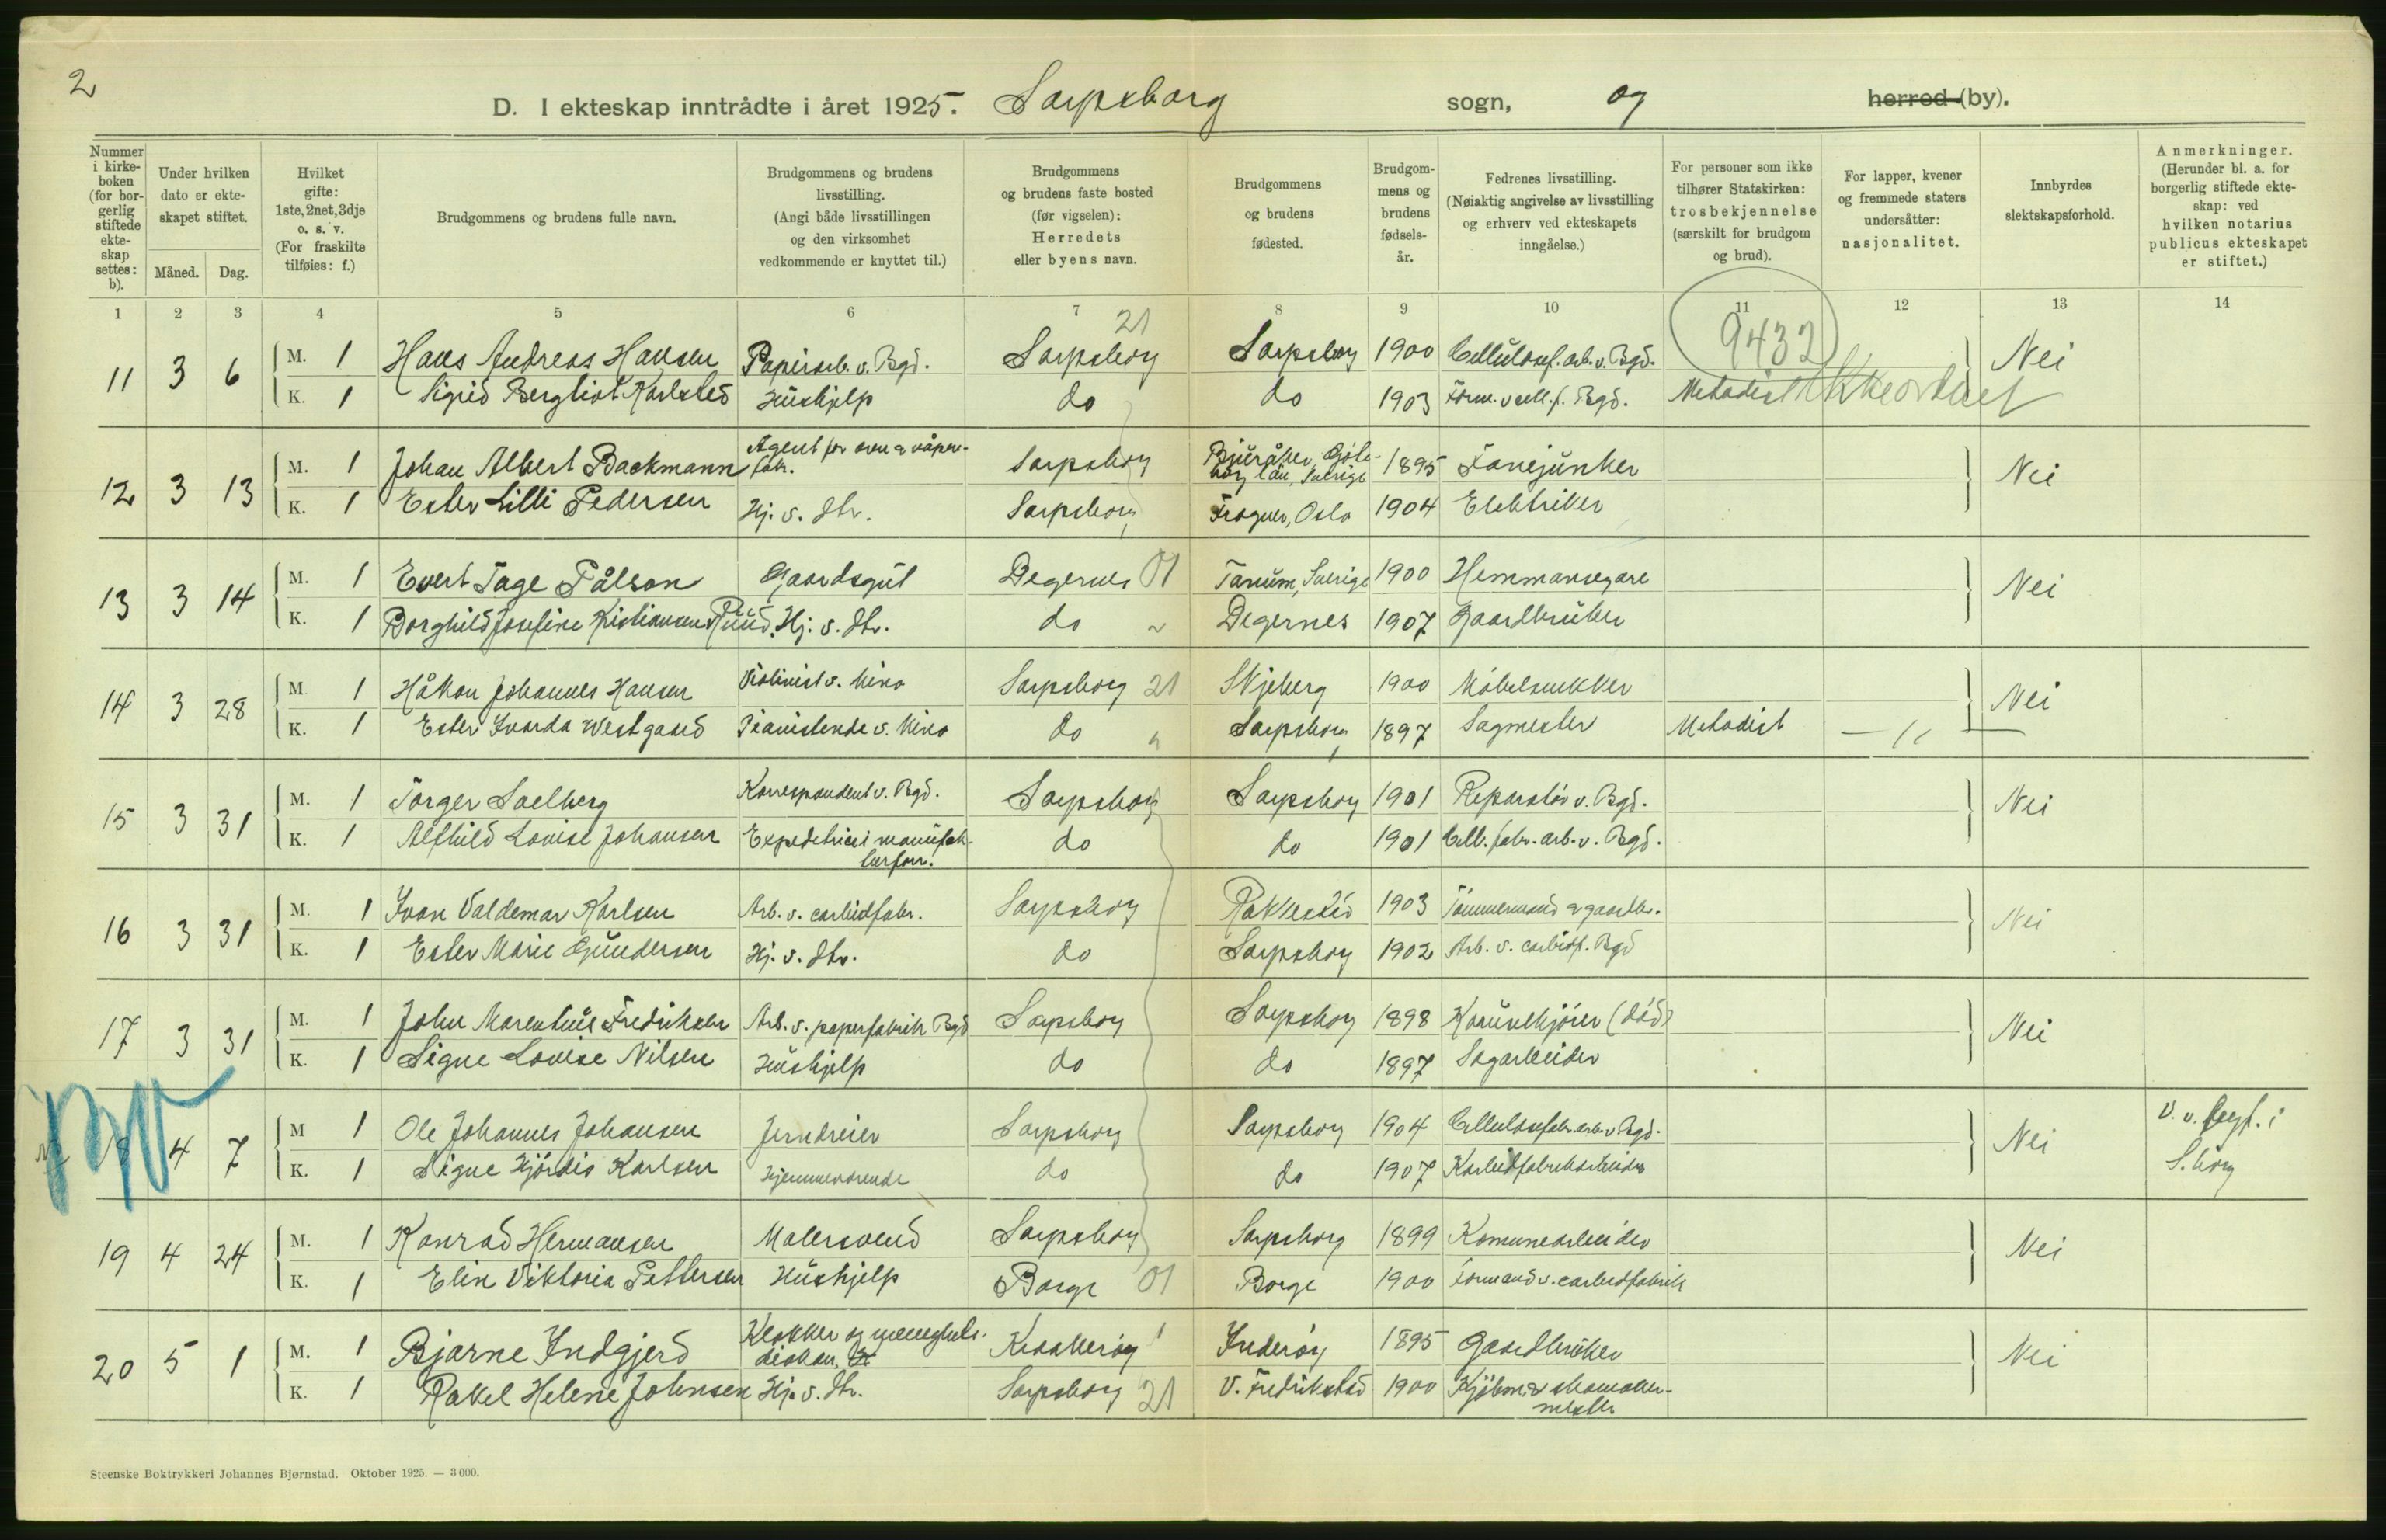 2
D. I ekteskap inntrådte i året 1925. Sarpsborg sogn, og herred (by).
Nummer i kirkeboken (for borgerlig stiftede ekteskap settes: b).
Under hvilken dato er ekteskapet stiftet.
Måned. Dag.
Hvilket gifte: 1ste, 2net, 3dje o. s. v. (For fraskilte tilføies: f.)
Brudgommens og brudens fulle navn.
Brudgommens og brudens livsstilling. (Angi både livsstillingen og den virksomhet vedkommende er knyttet til.)
Brudgommens og brudens faste bosted (før vigselen): Herredets eller byens navn.
Brudgommens og brudens fødested.
Brudgommens og brudens fødselsår.
Fedrenes livsstilling. (Nøiaktig angivelse av livsstilling og erhverv ved ekteskapets inngåelse.)
For personer som ikke tilhører Statskirken: trosbekjennelse (særskilt for brudgom og brud).
For lapper, kvener og fremmede staters undersåtter: nasjonalitet.
Innbyrdes slektskapsforhold.
Anmerkninger. (Herunder bl. a. for borgerlig stiftede ekteskap: ved hvilken notarius publicus ekteskapet er stiftet.)
1 2 3 4 5 6 7 8 9 10 11 12 13 14
21 9432
11 3 6 M. 1 Hans Andreas Hansen Papirarb. v. Bgd. Sarpsborg Sarpsborg 1900 Cellulosef. arb. v. Bgd. Nei
K. 1 Sigrid Bergliot Karlsted Hushjelp do do 1903 Form. v cell. f. Bgd. Metodist
12 3 13 M. 1 Johan Albert Backmann Agent for oven & våpenfabr. Sarpsborg Bjuråker, Göteborg län, Sverige 1895 Fanejunker Nei
K. 1 Ester Lilli Pedersen Hj. v. str. Sarpsborg Frogner, Oslo 1904 Elektriker
13 3 14 M. 1 Evert Tage Pålson Gaardsgut Degernes 01 Tanum, Sverige 1900 Hemmansegare Nei
K. 1 Borghild Josefine Kristiansen Ruud Hj. v. str. do Degernes 1907 Gaardbruker
14 3 28 M. 1 Håkon Johannes Hansen Violinist v. kino Sarpsborg 21 Skjeberg 1900 Möbelsnekker Nei
K. 1 Ester Ivarda Westgaard Pianistinde v. kino do Sarpsborg 1897 Sagmester Metodist — 11
15 3 31 M. 1 Torger Soelberg Korrespondent v. Bgd. Sarpsborg Sarpsborg 1901 Reparatör v. Bgd. Nei
K. 1 Alfhild Lovise Johansen Expeditrice i manufakturforr. do do 1901 Cell. fabr. arb. v. Bgd.
16 3 31 M. 1 Ivan Valdemar Karlsen Arb. v. carbidfabr. Sarpsborg Rakkestad 1903 Tömmermand & gaardbr. Nei
K. 1 Ester Marie Gundersen Hj. v. str. do Sarpsborg 1902 Arb. v. carbidf. Bgd
17 3 31 M. 1 John Marentius Fredriksen Arb. v. papirfabrik Bgd Sarpsborg Sarpsborg 1898 Karuselkjörer (död) Nei
K. 1 Signe Lovise Nilsen Hushjelp do do 1897 Sagarbeider
18 4 7 M 1 Ole Johannes Johansen Jerndreier Sarpsborg Sarpsborg 1904 Cellulosefabr. arb. v. Bgd. Nei V. v. byf. i S.borg
K. 1 Signe Hjördis Karlsen Hjemmeværende do do 1907 Karbidfabrikarbeider
19 4 24 M. 1 Konrad Hermansen Malersvend Sarpsborg Sarpsborg 1899 Komunearbeider Nei
K. 1 Elin Viktoria Pettersen Hushjelp Borge 01 Borge 1900 Formand v. carbidfabrik
20 5 1 M. 1 Bjarne Indgjerd Klokker og menighetsdiakon Kraakeröy 1 Inderöy 1895 Gaardbruker Nei
K. 1 Rakel Helene Johnsen Hj. v. str. Sarpsborg 21 V. Fredrikstad 1900 Kjöbm. & skomakermester
Steenske Boktrykkeri Johannes Bjørnstad. Oktober 1925. — 3 000.